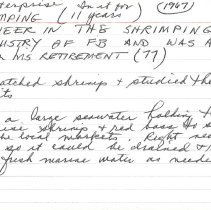 terprise. In it for (1967)
MPING (11 years)
EER IN THE SHRIMPING
USTRY OF FB AND WAS A
MS RETIREMENT (77)
atched shrimp & studied the
ts
a large seawater holding t
ise shrimp & red bass to s
he local markets. Right ne
so it could be drained & r
fresh marine water as neede